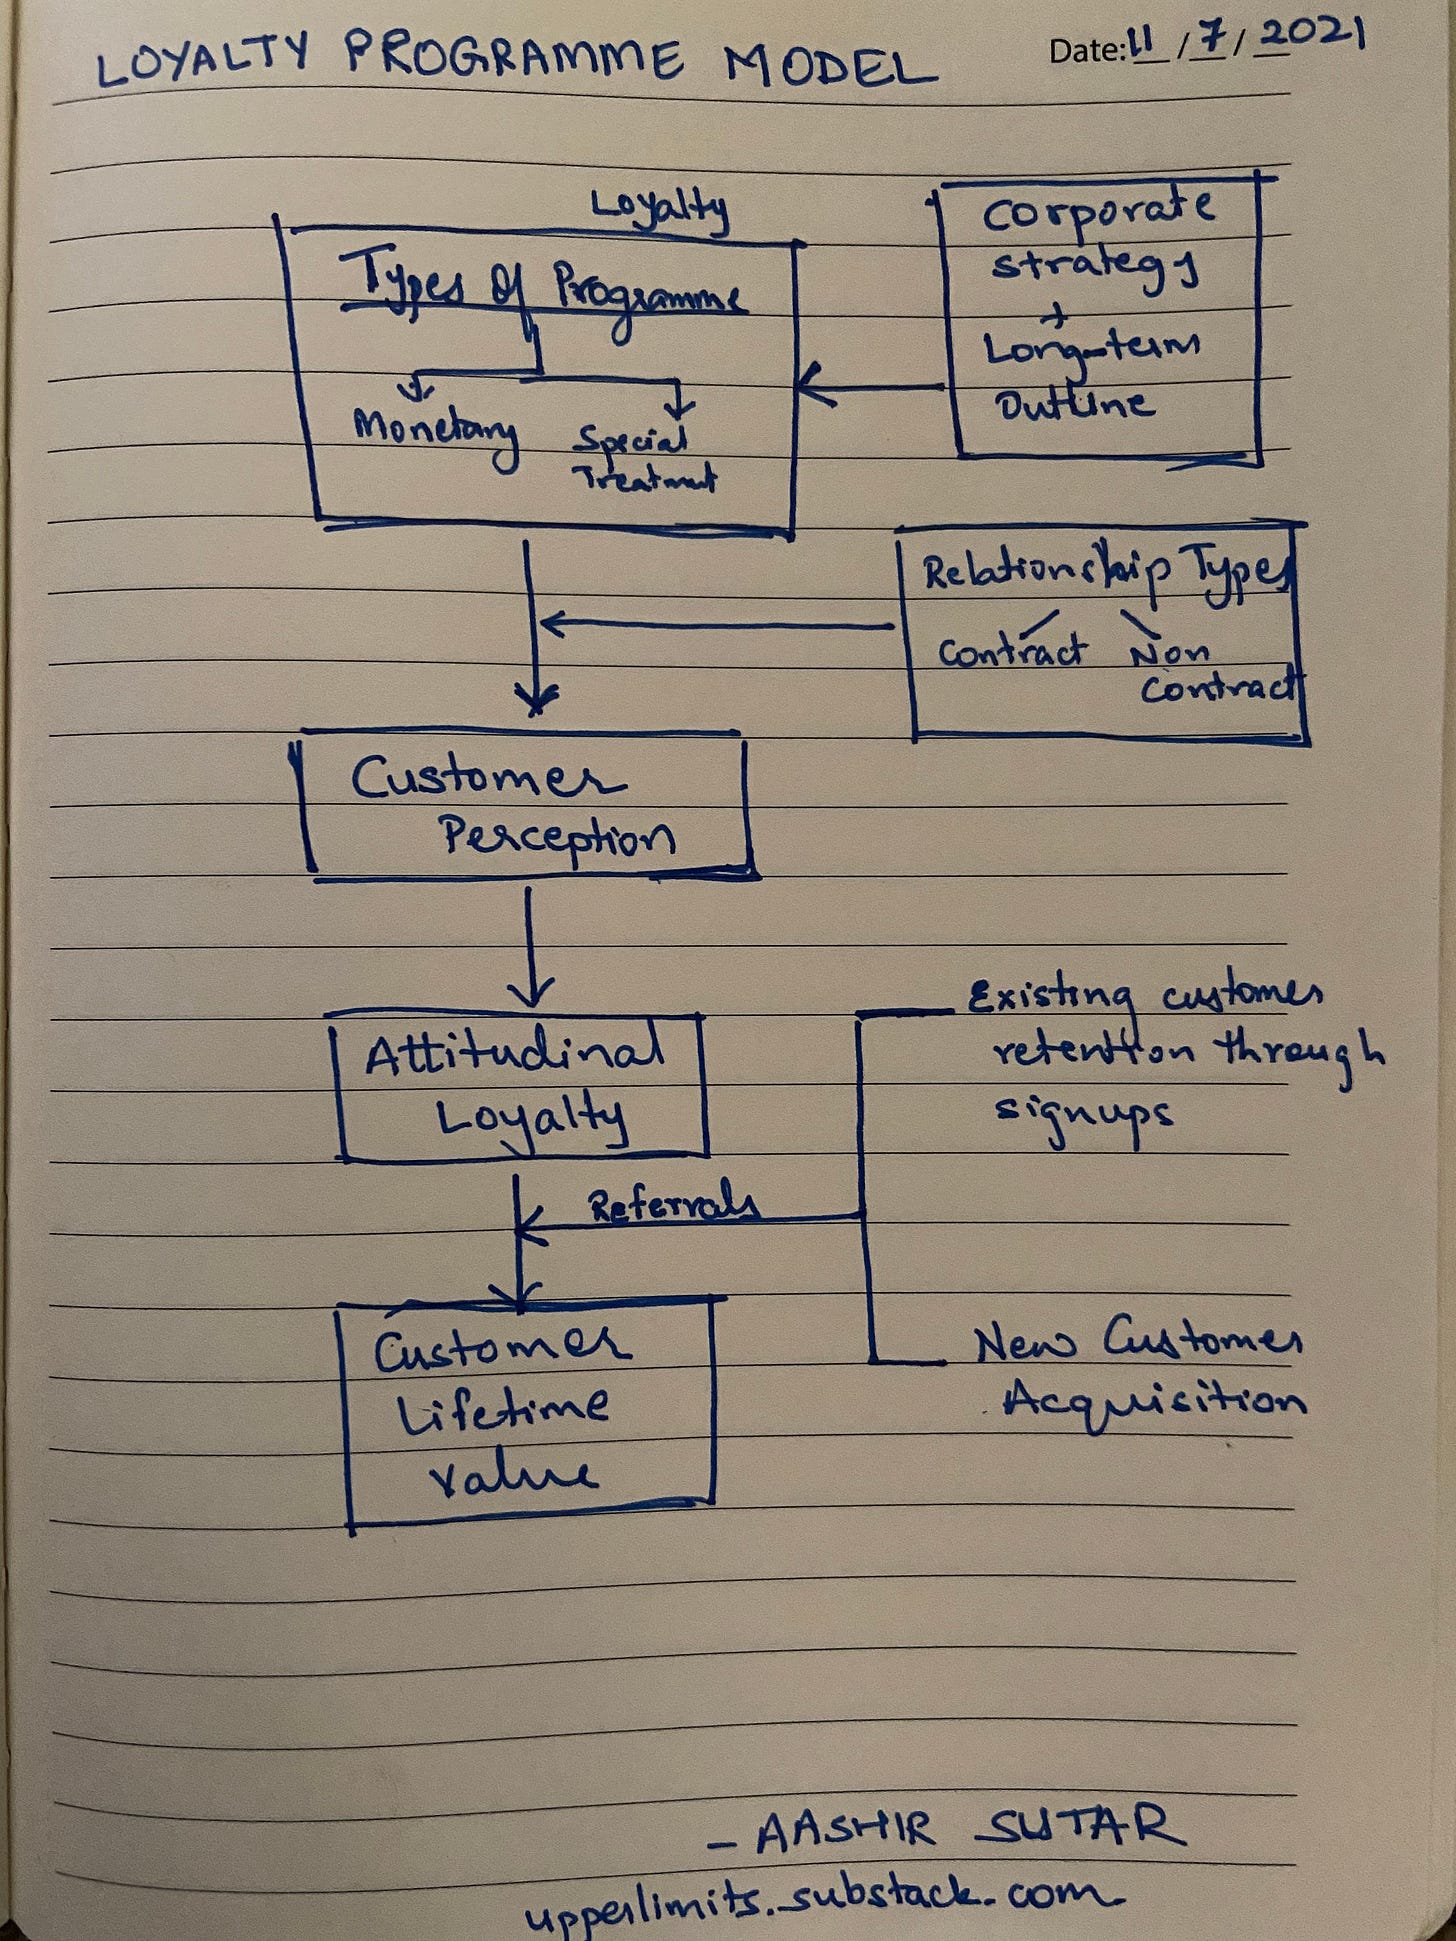 LOYALTY PROGRAMME MODEL
Date: 11/7/2021
Loyalty
Types of Programme
Monetary
Special
Treatment
Corporate
strategy
+
Long-term
Outline
Relationship Types
Contract
Non
Contract
Customer
Perception
Attitudinal
Loyalty
Existing customer
retention through
signups
Referrals
Customer
Lifetime
Value
New Customer
Acquisition
- AASHIR SUTAR
upperlimits.substack.com